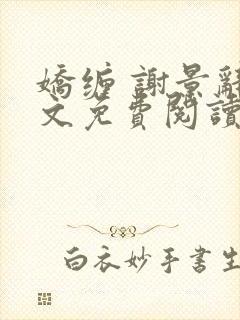 嬌缠 謝景辭
文免費閱讀
白衣妙手書生